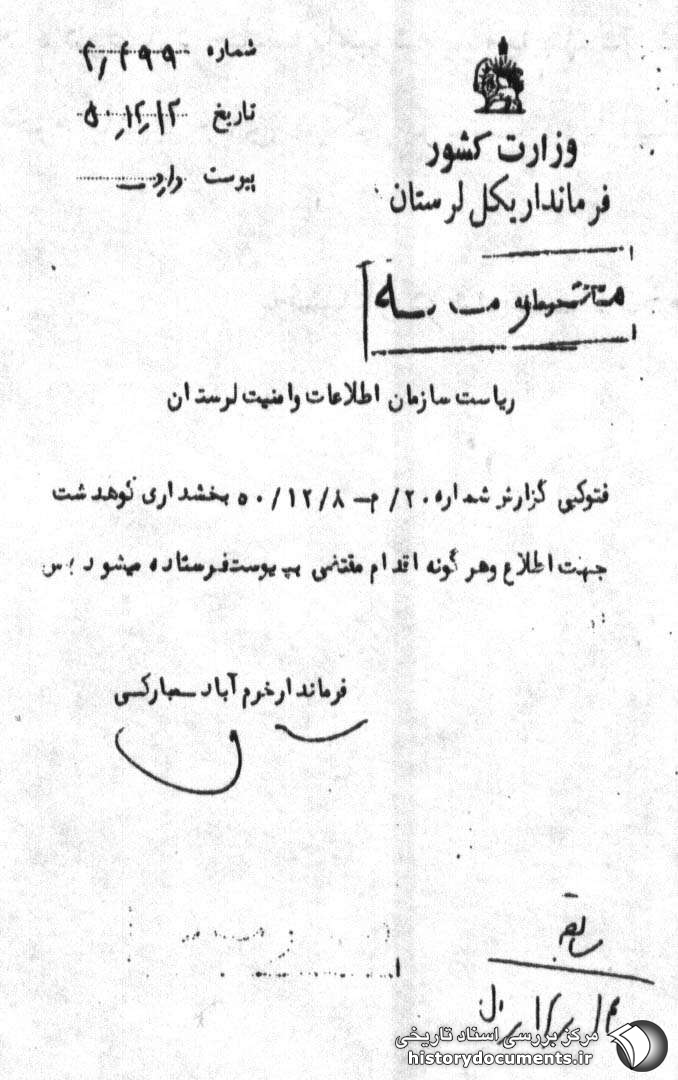 شماره ۲/۴۹۹
تاریخ ۵۰/۱۲/۱۲
پیوست دارد
وزارت کشور
فرمانداریکل لرستان
مستقیم محرمانه
ریاست سازمان اطلاعات وامنیت لرستان
فتوکپی گزارش شماره ۲۰/م-۵۰/۱۲/۸ بخشداری کوهدشت
جهت اطلاع وهر گونه اقدام مقتضی به پیوست فرستاده میشود
فرماندار خرم آباد - مبارکی
مرکز بررسی اسناد تاریخی
historydocuments.ir